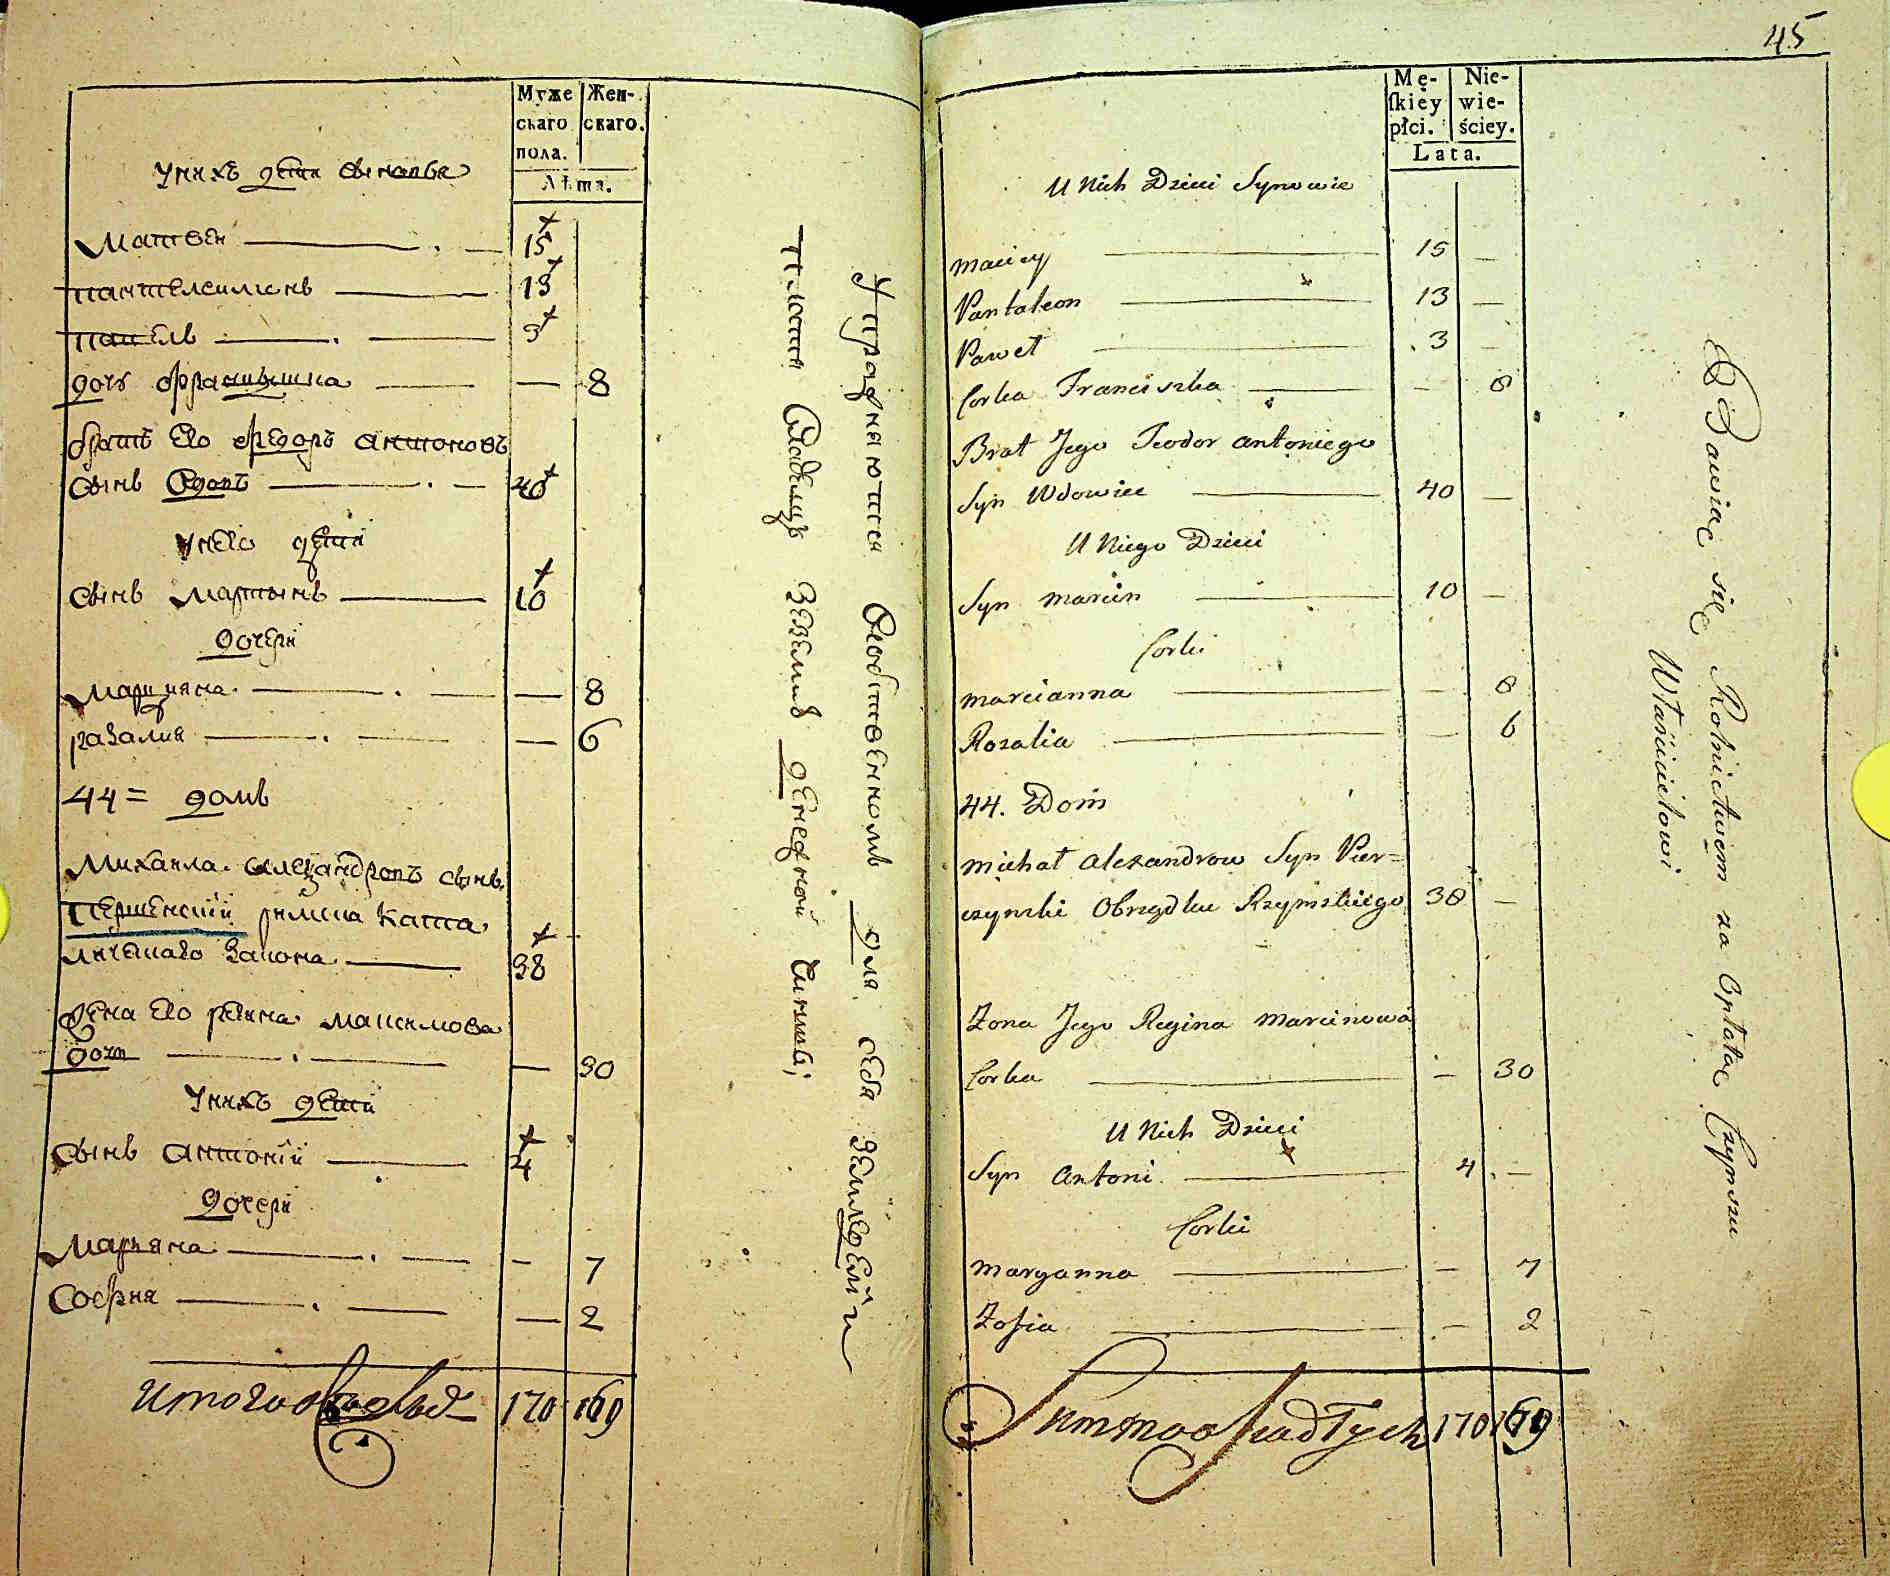 Муже
скаго
пола.
Жен-
скаго.
Лѣта.
У нихъ дети сыновья
Матвеи 15
пантелеимонъ 13
павелъ 3
дочь францышка 8
братъ его Федоръ антоновъ
сынъ вдовъ 40
У него дети
сынъ мартынъ 10
дочери
марцияна 8
разалия 6
44 = домъ
Михаила александровъ сынъ
першенский римска като
лическаго закона 38
жена его регина максимова
дочь 30
У нихъ дети
сынъ антоний 4
дочери
Марьяна 7
София 2
итого 170 169
Упражняются собственномъ для себя земледелии
платя владелцу земли денежной чиншъ;
45
Mę-
skiey
płci.
Nie-
wie-
ściey.
Lata.
U Nich Dzieci Synowie
Maciey 15 —
Pantaleon 13 —
Paweł 3 —
Corka Franciszka — 8
Brat Jego Teodor Antoniego
Syn Wdowiec 40 —
U Niego Dzieci
Syn Marcin 10 —
Corki
Marcianna — 8
Rozalia — 6
44. Dom
Michał Alexandrow Syn Pier=
czynski Obrządku Rzymskiego 38 —
Zona Jego Regina Marcinowa
Corka — 30
U Nich Dzieci
Syn Antoni 4 —
Corki
Maryanna — 7
Zofia — 2
Summa osiadłych 170 169
Bawiąc się Rolnictwem na Opłatę Czynszu
Właścicielowi